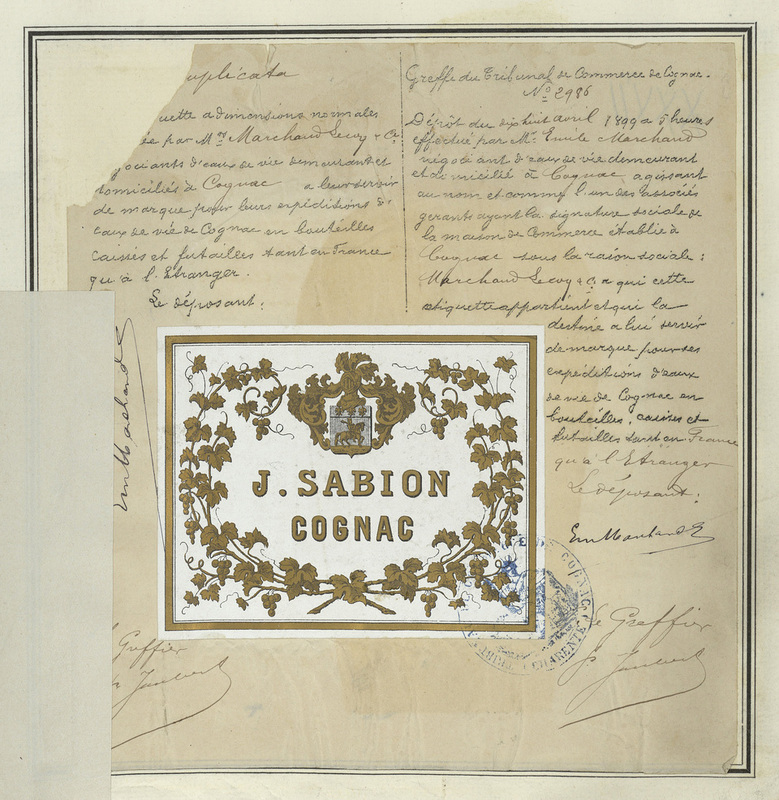 uplicata
uette a dimensions normales
ée par Mrs Marchand Lecoq & Ce
gociants d'eaux de vie demeurant et
domiciliés à Cognac a leur servir
de marque pour leurs expéditions d'
eaux de vie de Cognac en bouteilles
caisses et futailles tant en France
qu'à l'Etranger.
Le déposant:
Em Marchand
Greffier
Greffe du Tribunal de Commerce de Cognac.
No 2986
Dépôt du dix huit avril 1899 à 5 heures
effectué par Mr. Emile Marchand
négociant d'eaux de vie demeurant
et domicilié à Cognac agissant
au nom et comme l'un des associés
gérants ayant la signature sociale de
la maison de Commerce établie à
Cognac sous la raison sociale:
Marchand Lecoq & Ce a qui cette
etiquette appartient et qui la
destine a lui servir
de marque pour ses
expéditions d'eaux
de vie de Cognac en
bouteilles, caisses et
futailles tant en France
qu'à l'Etranger
Le déposant:
Em Marchand
Le Greffier
J. SABION
COGNAC
DE COGNAC
CHARENTE